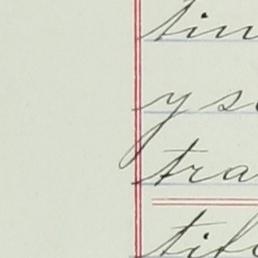 tin
y s
tra
tif